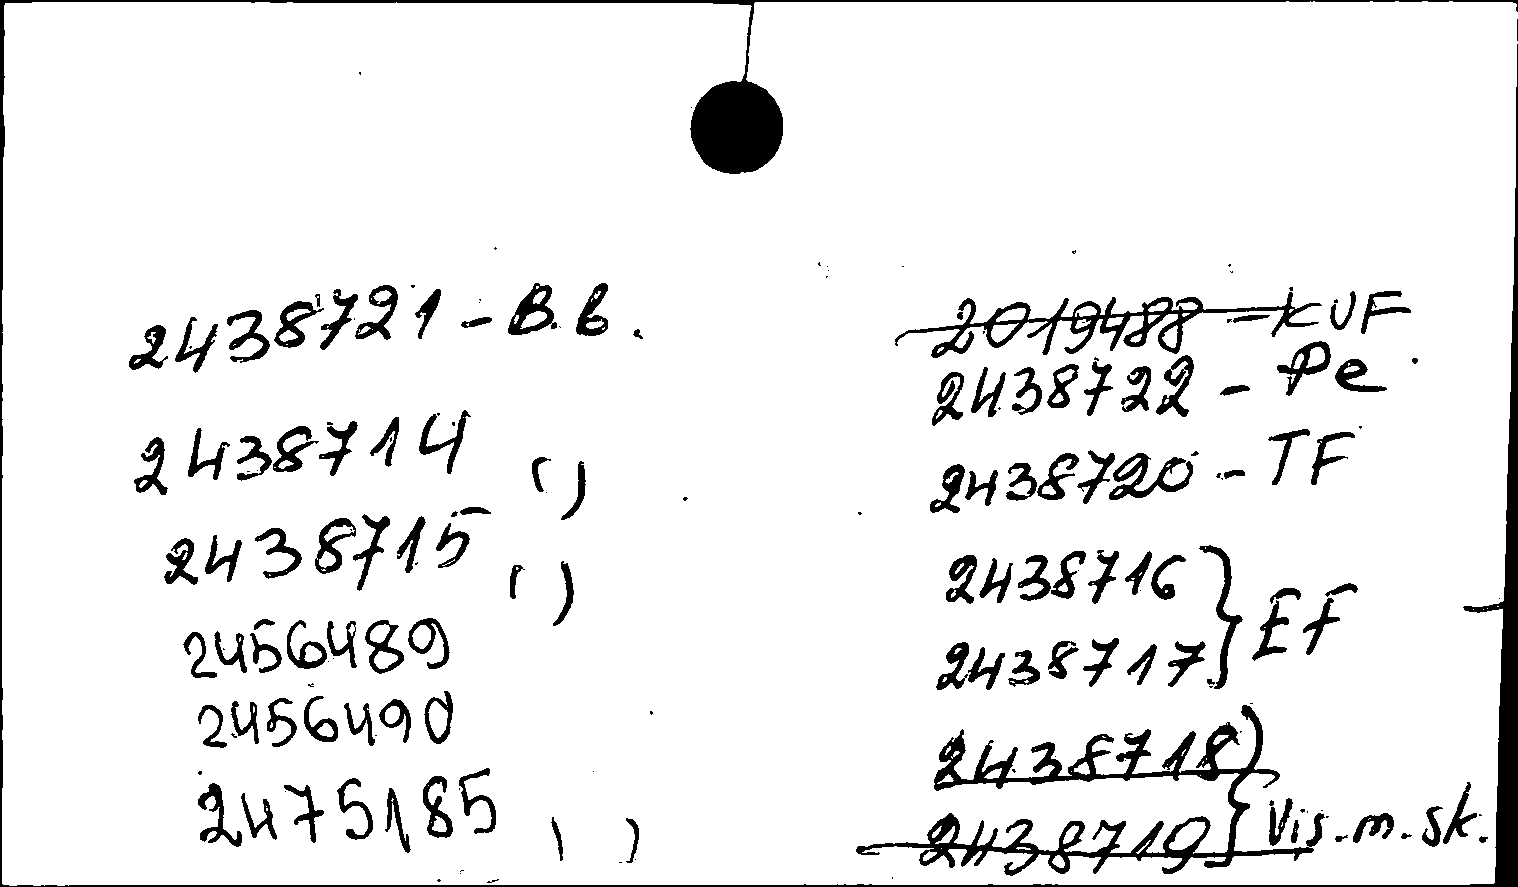 2438721 - B.b.
2438714 ( )
2438715 ( )
2456489
2456490
2475185 ( )
2019488 - KUF
2438722 - Pe
2438720 - TF
2438716 } EF
2438717
2438718 } Vis.m.sk.
2438719